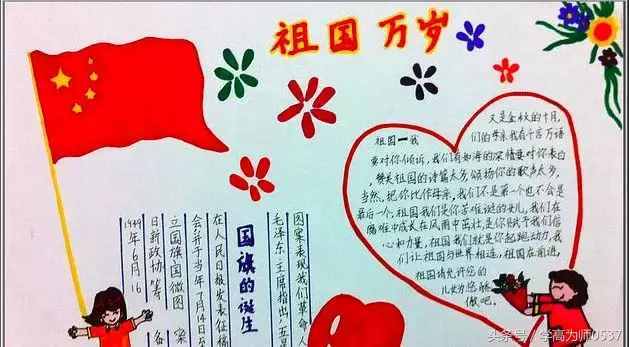 祖国万岁
又是金秋的十月,
祖国一我们的母亲我有千言万语
要对你倾诉,我们有如海的深情要对你表白
,赞美祖国的诗篇太多,颂扬你的歌声太多,
当然,把你比作母亲,我们不是第一个也不会是
最后一个,祖国我们是你苦难诞的女儿,我们在
磨难中成长在风雨中茁壮,是你赋予我们信
心和力量,祖国我们就是你起跑动力,我
们让祖国与世界相连,祖国在前进,
祖国请允许您的
儿女为您骄
傲吧。
国旗的诞生
1949年6月16
日新政协筹备
立国旗国徽图案
会并于当年7月14日至
在人民日报发表征稿
毛泽东主席指出:五星
图案表现我们革命人
头条号／学高为师0537